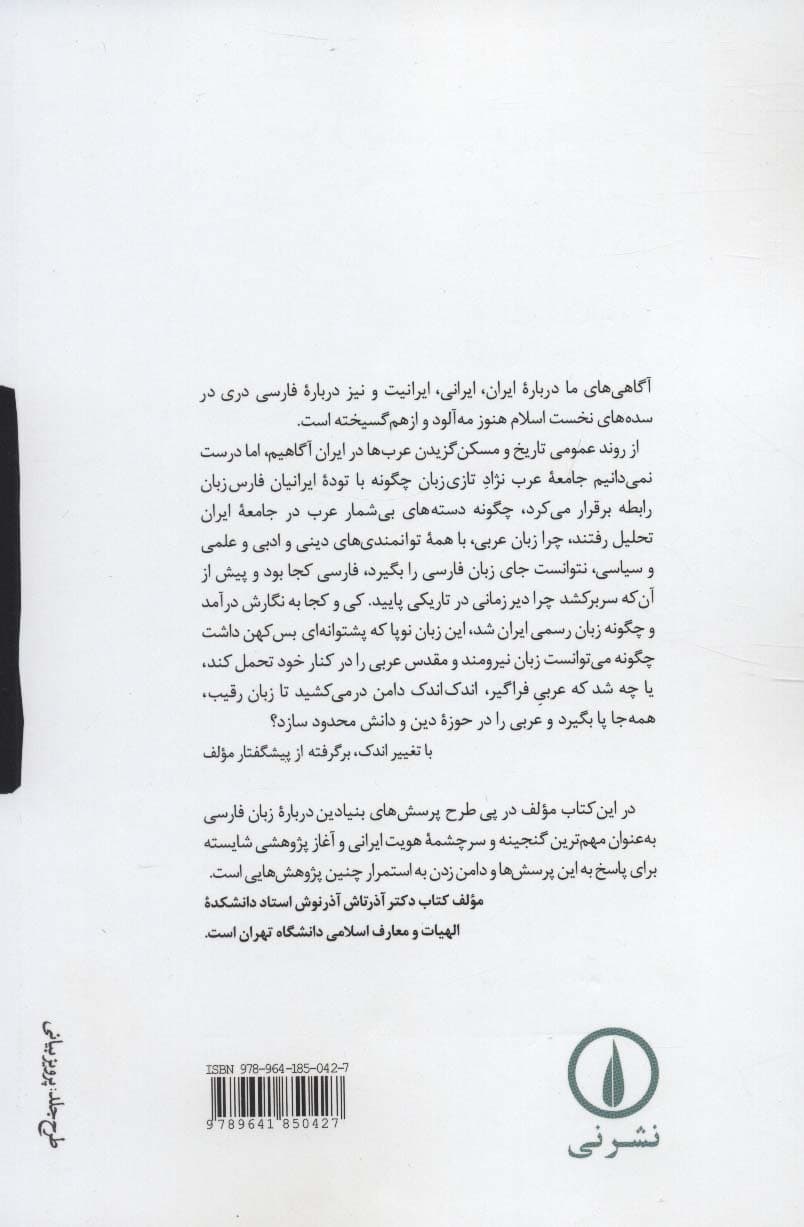 آگاهی‌های ما دربارهٔ ایران، ایرانی، ایرانیت و نیز دربارهٔ فارسی دری در
سده‌های نخست اسلام هنوز مه‌آلود و ازهم‌گسیخته است.
از روند عمومی تاریخ و مسکن‌گزیدن عرب‌ها در ایران آگاهیم، اما درست
نمی‌دانیم جامعهٔ عرب نژادِ تازی‌زبان چگونه با تودهٔ ایرانیان فارس‌زبان
رابطه برقرار می‌کرد، چگونه دسته‌های بی‌شمار عرب در جامعهٔ ایران
تحلیل رفتند، چرا زبان عربی، با همهٔ توانمندی‌های دینی و ادبی و علمی
و سیاسی، نتوانست جای زبان فارسی را بگیرد، فارسی کجا بود و پیش از
آن‌که سربرکشد چرا دیر زمانی در تاریکی پایید. کی و کجا به نگارش درآمد
و چگونه زبان رسمی ایران شد، این زبان نوپا که پشتوانه‌ای بس‌کهن داشت
چگونه می‌توانست زبان نیرومند و مقدس عربی را در کنار خود تحمل کند،
یا چه شد که عربیِ فراگیر، اندک‌اندک دامن درمی‌کشید تا زبان رقیب،
همه‌جا پا بگیرد و عربی را در حوزهٔ دین و دانش محدود سازد؟
با تغییر اندک، برگرفته از پیشگفتار مؤلف
در این کتاب مؤلف در پی طرح پرسش‌های بنیادین دربارهٔ زبان فارسی
به‌عنوان مهم‌ترین گنجینه و سرچشمهٔ هویت ایرانی و آغاز پژوهشی شایسته
برای پاسخ به این پرسش‌ها و دامن زدن به استمرار چنین پژوهش‌هایی است.
مؤلف کتاب دکتر آذرتاش آذرنوش استاد دانشکدهٔ
الهیات و معارف اسلامی دانشگاه تهران است.
طرح جلد: پرویز بیانی
ISBN 978-964-185-042-7
9 789641 850427
نشر نی